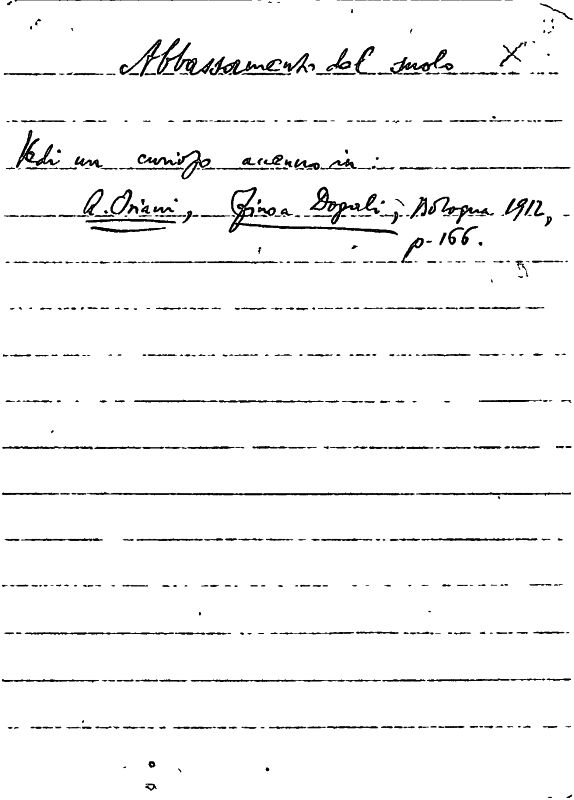 Abbassamento del suolo X
Vedi un curioso accenno in :
A. Oriani, Fino a Dogali, Bologna 1912,
p. 166.